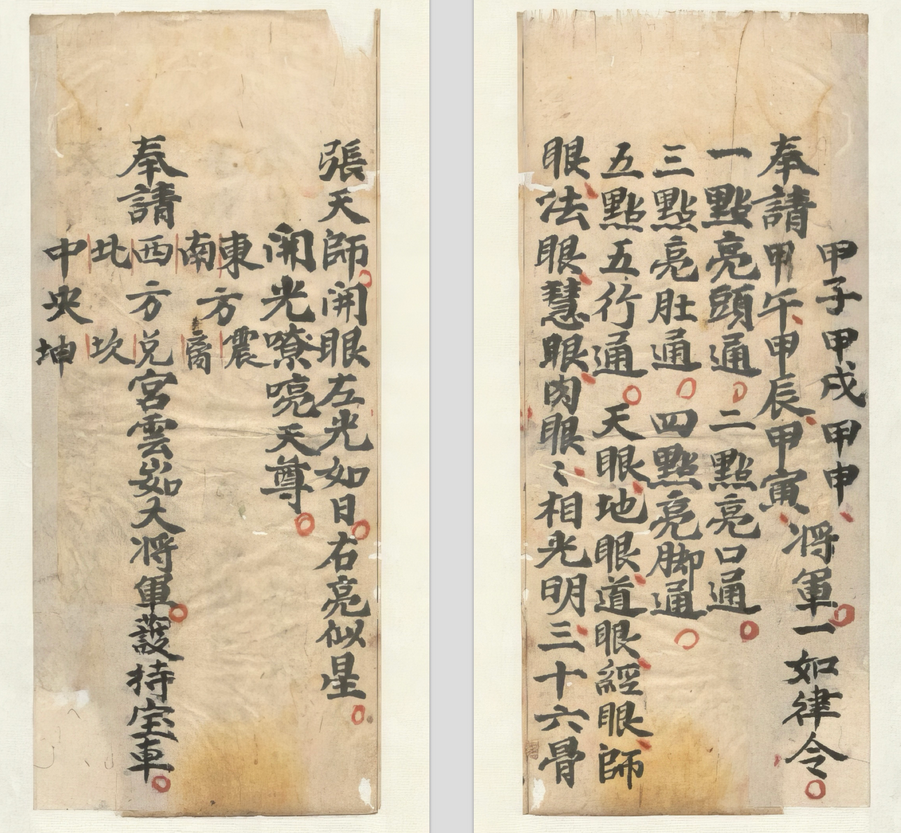 甲子甲戌甲申
奉請甲午甲辰甲寅将軍一如律令
一點亮頭通二點亮口通
三點亮肚通四點亮脚通
五點五行通天眼地眼道眼經眼師
眼法眼慧眼肉眼〻相光明三十六骨
張天師開眼左光如日右亮似星
開光嘹喨天尊
東方震
南离
奉請西方兑宮雲大将軍護持宝車
北坎
中央坤